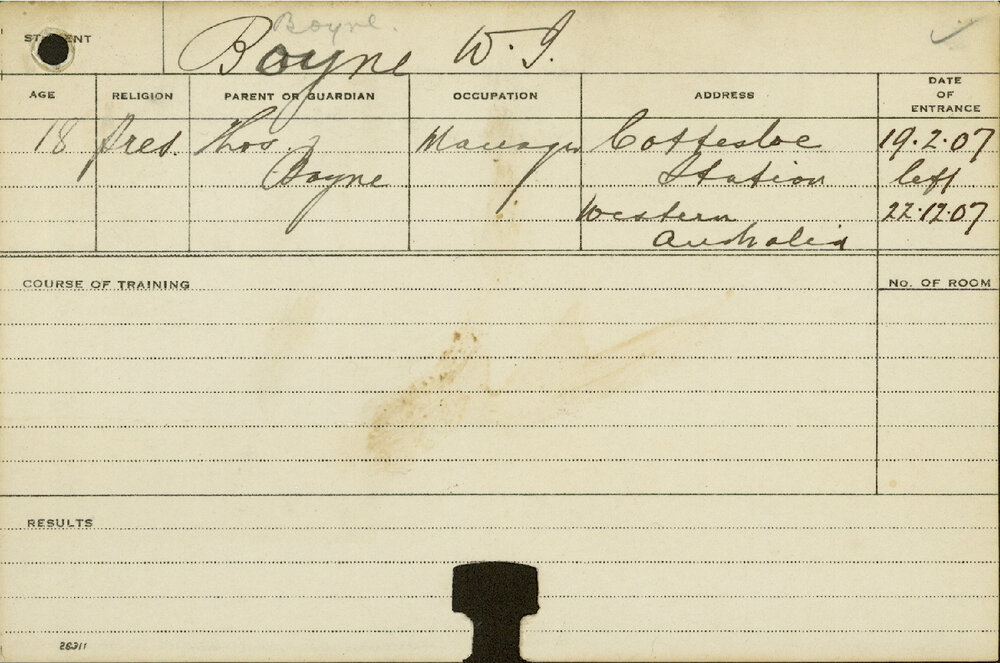 Boyne.
STUDENT Boyne W. J.
AGE RELIGION PARENT OR GUARDIAN OCCUPATION ADDRESS DATE OF ENTRANCE
18 Pres. Thos. Manager Cottesloe 19.2.07
Boyne Station left
Western 22.12.07
Australia
COURSE OF TRAINING No. OF ROOM
RESULTS
28311